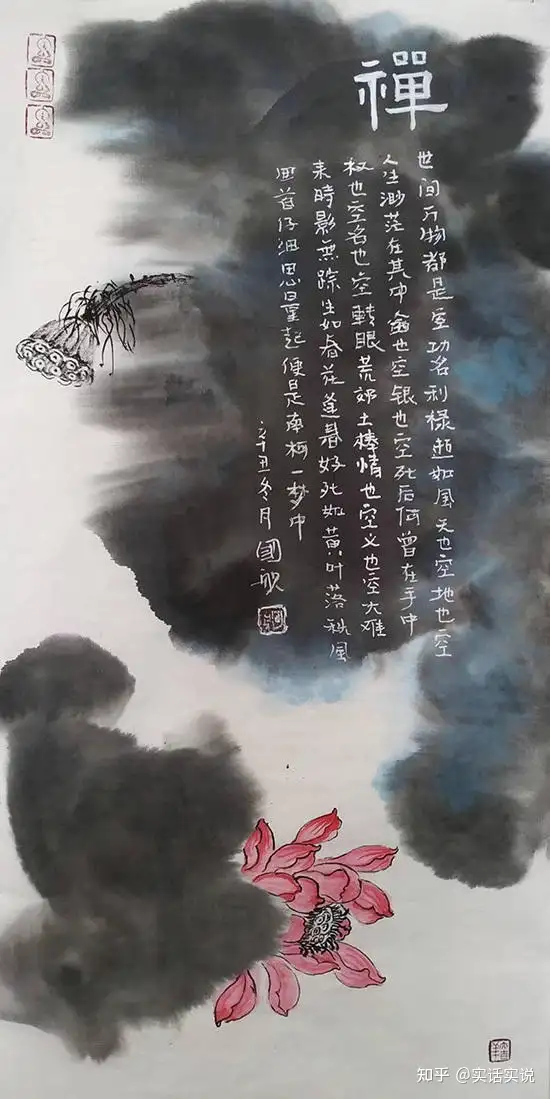 禪
世间万物都是空功名利禄逝如風天也空地也空
人生渺茫在其中金也空银也空死后何曾在手中
权也空名也空轉眼荒郊土棒情也空义也空大难
来時影無踪生如春花逢春好死如黄叶落秋風
囬首仔细思量起便是南柯一梦中
辛丑冬月國
知乎 @实话实说